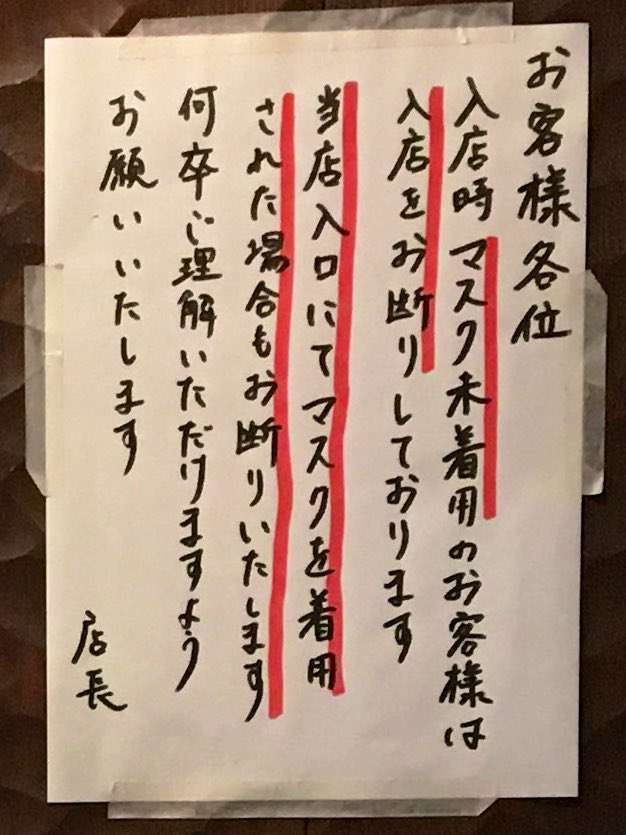 お客様各位
入店時マスク未着用のお客様は
入店をお断りしております
当店入口にてマスクを着用
された場合もお断りいたします
何卒ご理解いただけますよう
お願いいたします
店長